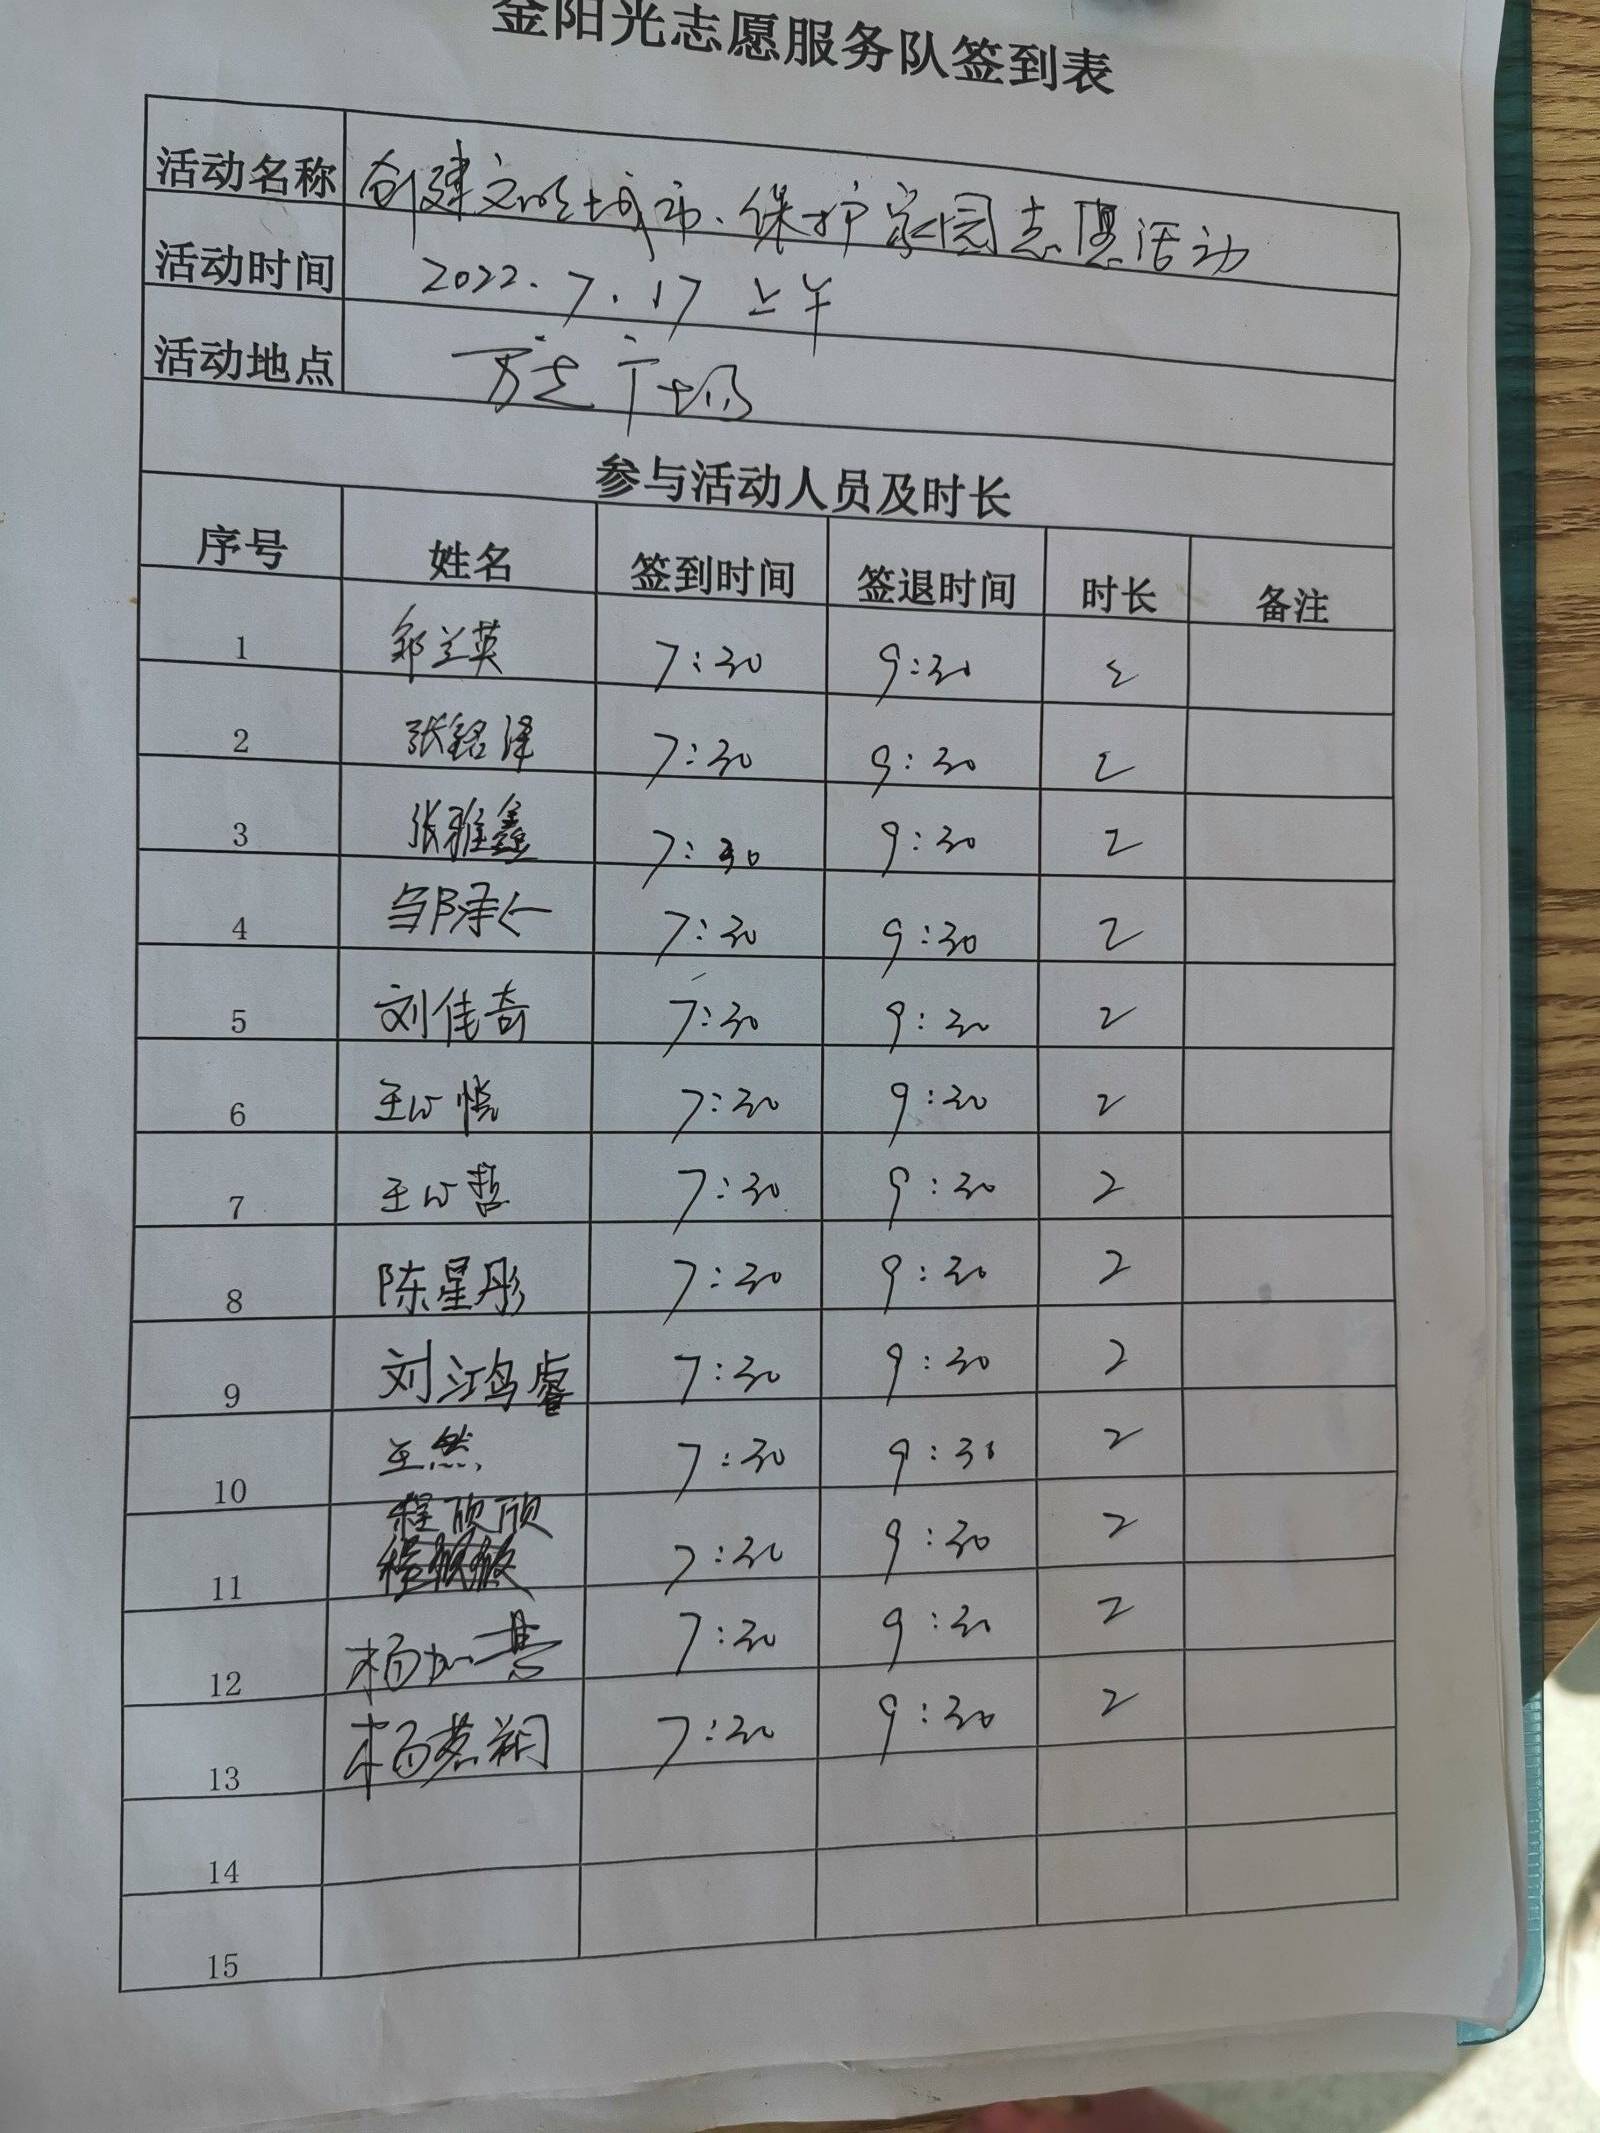 金阳光志愿服务队签到表
活动名称 创建文明城市、保护家园志愿活动
活动时间 2022.7.17 上午
活动地点 万达广场
参与活动人员及时长
序号 姓名 签到时间 签退时间 时长 备注
1 郑兰英 7:30 9:30 2
2 张铭泽 7:30 9:30 2
3 张雅鑫 7:30 9:30 2
4 邹泽仁 7:30 9:30 2
5 刘佳奇 7:30 9:30 2
6 王心悦 7:30 9:30 2
7 王心哲 7:30 9:30 2
8 陈星彤 7:30 9:30 2
9 刘鸿睿 7:30 9:30 2
10 王然 7:30 9:30 2
程欣欣
11 7:30 9:30 2
12 杨加慧 7:30 9:30 2
13 杨慕翔 7:30 9:30 2
14
15